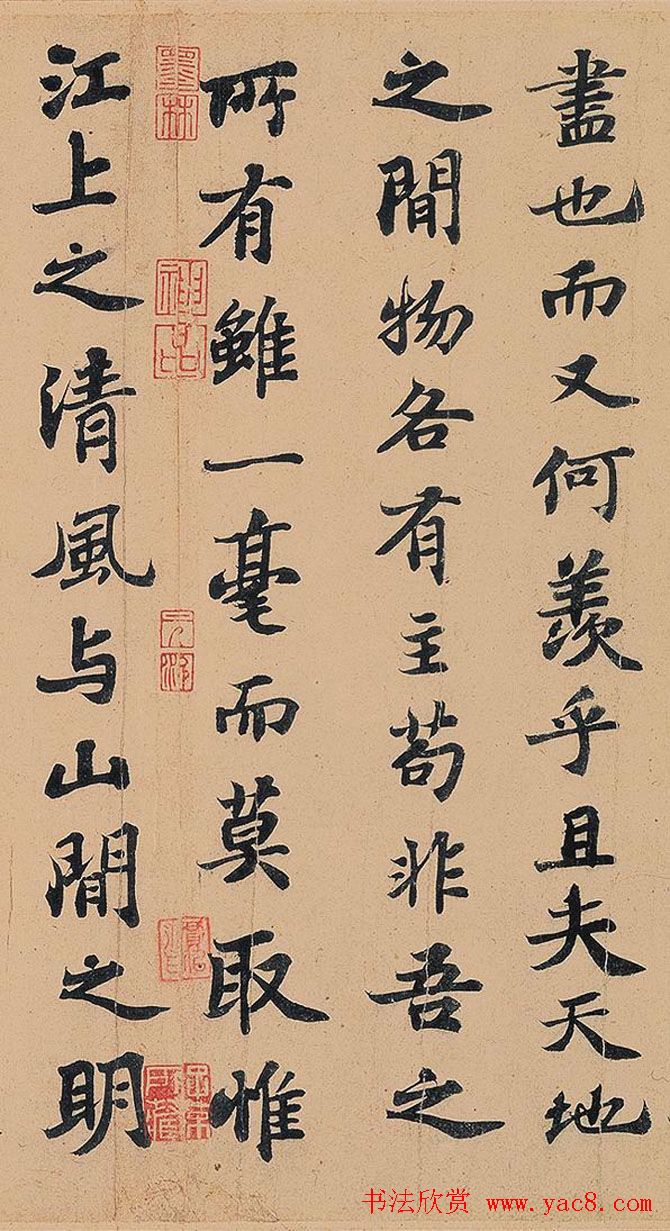 盡也而又何羨乎且夫天地
之間物各有主苟非吾之
所有雖一毫而莫取惟
江上之清風与山間之明
墨林
神品
书法欣赏 www.yac8.com